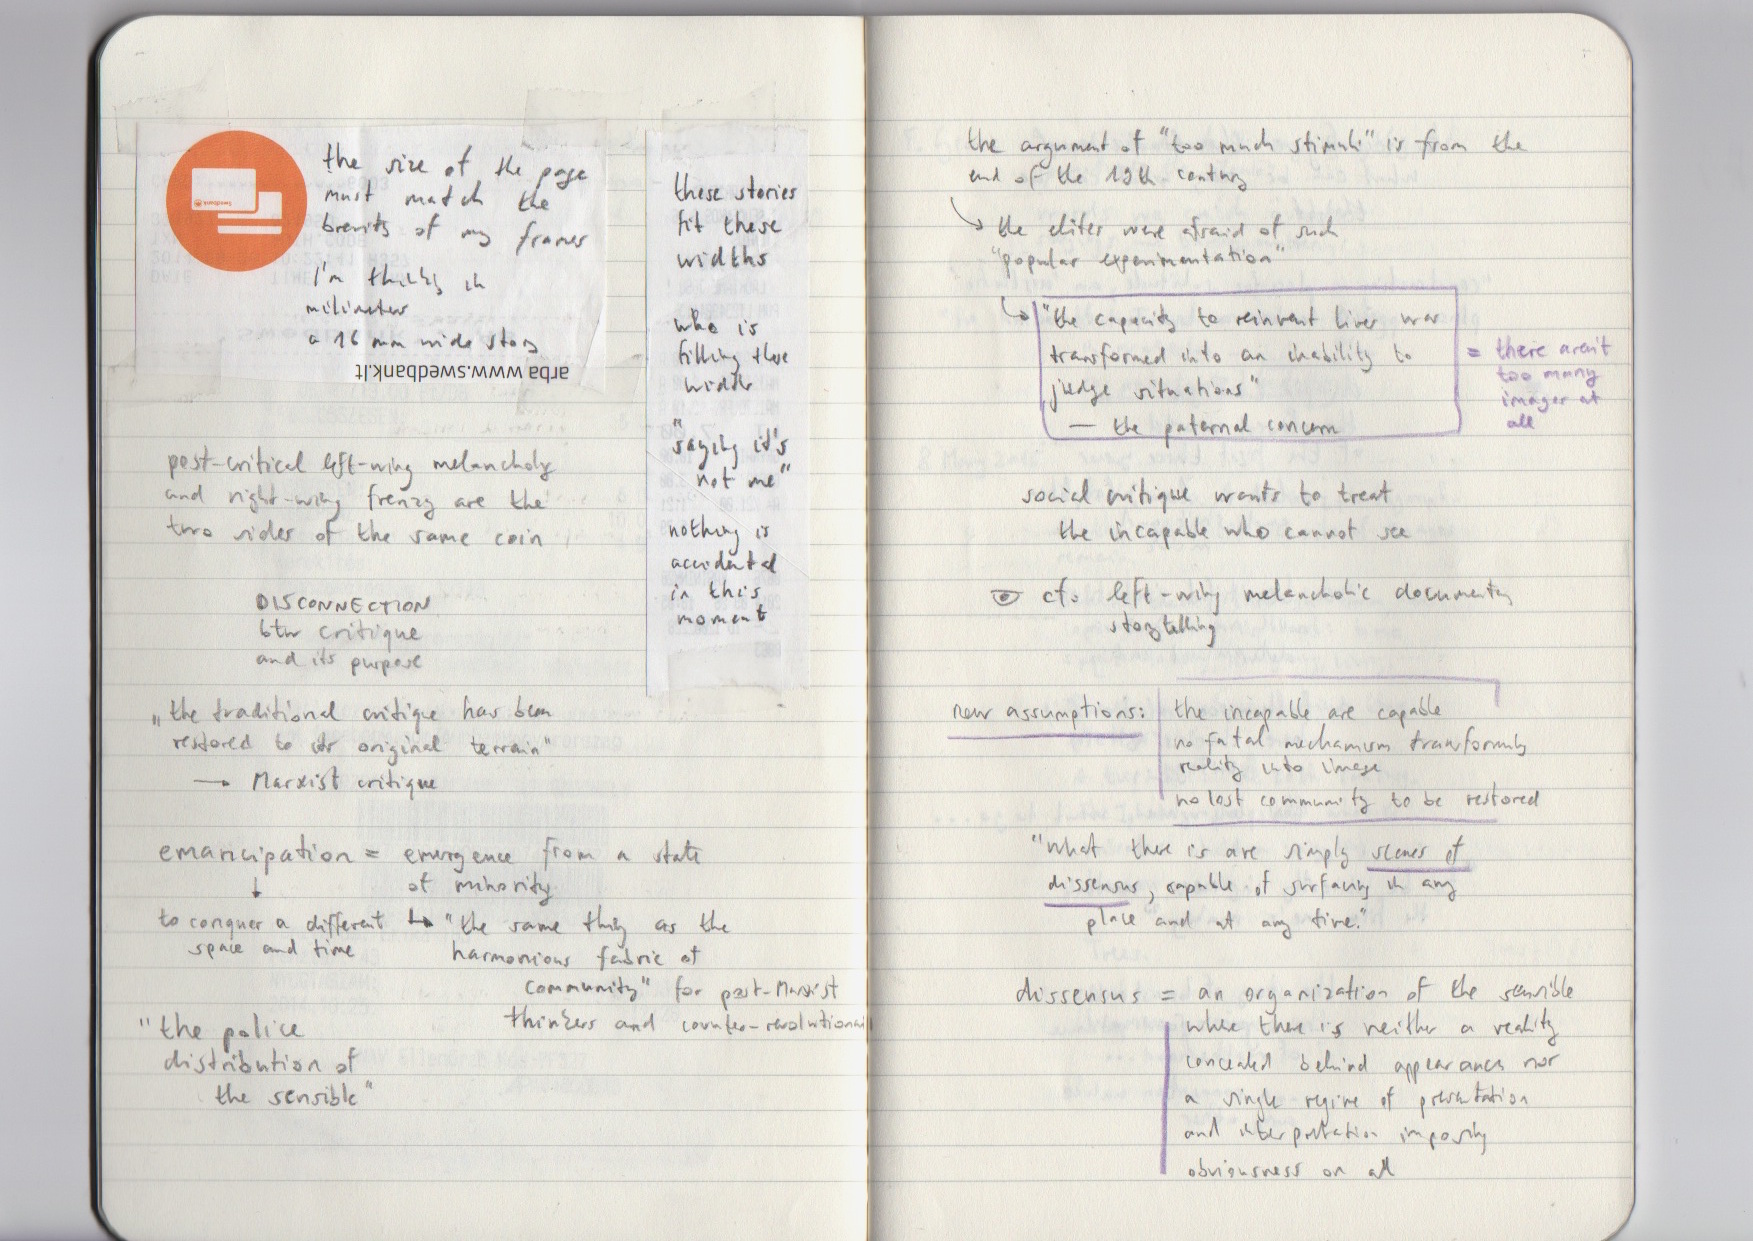 the size of the page
must match the
brevity of my frames
I'm thinking in
milimeters
a 16 mm wide story
Swedbank
arba www.swedbank.lt
these stories
fit these
widths
who is
filling these
widths
"saying it's
not me"
nothing is
accidental
in this
moment
post-critical left-wing melancholy
and right-wing frenzy are the
two sides of the same coin
DISCONNECTION
btw critique
and its purpose
„the traditional critique has been
restored to its original terrain"
→ Marxist critique
emancipation = emergence from a state
of minority
↓
to conquer a different
space and time
↳ "the same thing as the
harmonious fabric of
community" for post-Marxist
thinkers and counter-revolutionary
"the police
distribution of
the sensible"
the argument of "too much stimuli" is from the
end of the 19th century
↘ the elites were afraid of such
"popular experimentation"
↳ "the capacity to reinvent lives was
transformed into an inability to
judge situations"
— the paternal concern
= there aren't
too many
images at
all
social critique wants to treat
the incapable who cannot see
cf. left-wing melancholic documentary
storytelling
new assumptions:
the incapable are capable
no fatal mechanism transforming
reality into image
no lost community to be restored
"What there is are simply scenes of
dissensus, capable of surfacing in any
place and at any time."
dissensus = an organization of the sensible
where there is neither a reality
concealed behind appearances nor
a single regime of presentation
and interpretation imposing
obviousness on all